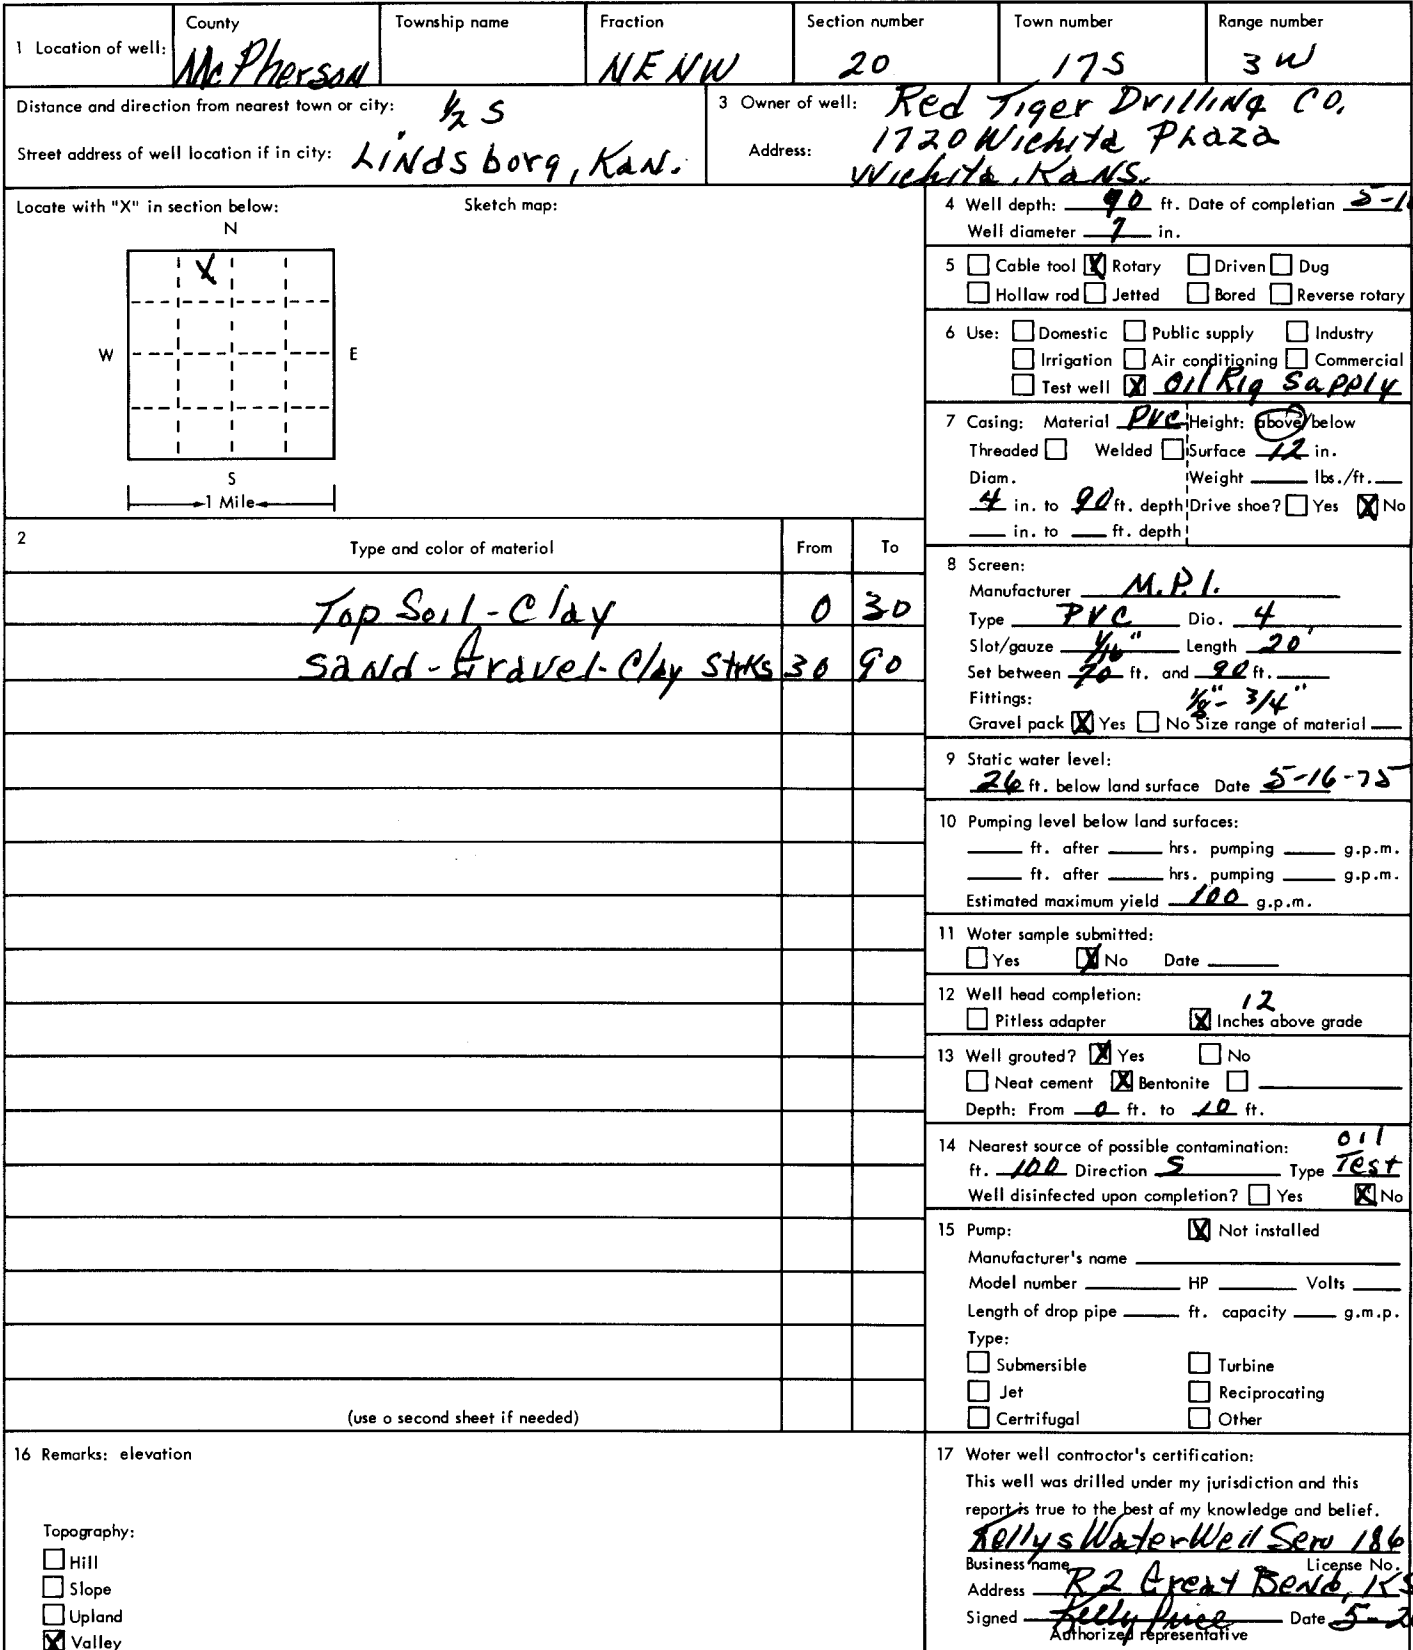 1 Location of well: County McPherson Township name Fraction NENW Section number 20 Town number 17S Range number 3W
Distance and direction from nearest town or city: ½ S
Street address of well location if in city: Lindsborg, Kan.
3 Owner of well: Red Tiger Drilling Co.
Address: 1720 Wichita Plaza
Wichita, Kans.
Locate with "X" in section below: Sketch map:
N
X
W E
S
1 Mile
2 Type and color of material From To
Top Soil - Clay 0 30
Sand - Gravel - Clay Strks 30 90
(use o second sheet if needed)
4 Well depth: 90 ft. Date of completian 5-1
Well diameter 7 in.
5 Cable tool X Rotary Driven Dug
Hollaw rod Jetted Bored Reverse rotary
6 Use: Domestic Public supply Industry
Irrigation Air conditioning Commercial
Test well X Oil Rig Supply
7 Casing: Material PVC Height: above/below
Threaded Welded Surface 12 in.
Diam. Weight lbs./ft.
4 in. to 90 ft. depth Drive shoe? Yes X No
in. to ft. depth
8 Screen:
Manufacturer M.P.I.
Type PVC Dio. 4
Slot/gauze 1/16" Length 20'
Set between 70 ft. and 90 ft.
Fittings: 1/8" - 3/4"
Gravel pack X Yes No Size range of material
9 Static water level:
26 ft. below land surface Date 5-16-75
10 Pumping level below land surfaces:
ft. after hrs. pumping g.p.m.
ft. after hrs. pumping g.p.m.
Estimated maximum yield 100 g.p.m.
11 Woter sample submitted:
Yes X No Date
12 Well head completion: 12
Pitless adapter X Inches above grade
13 Well grouted? X Yes No
Neat cement X Bentonite
Depth: From 0 ft. to 10 ft.
14 Nearest source of possible contamination: oil
ft. 100 Direction S Type Test
Well disinfected upon completion? Yes X No
15 Pump: X Not installed
Manufacturer's name
Model number HP Volts
Length of drop pipe ft. capacity g.m.p.
Type:
Submersible Turbine
Jet Reciprocating
Certrifugal Other
16 Remarks: elevation
Topography:
Hill
Slope
Upland
X Valley
17 Woter well controctor's certification:
This well was drilled under my jurisdiction and this
report is true to the best af my knowledge and belief.
Kellys Water Well Serv 186
Business name License No.
Address R2 Great Bend, KS
Signed Kelly Price Date 5-2
Authorized representative